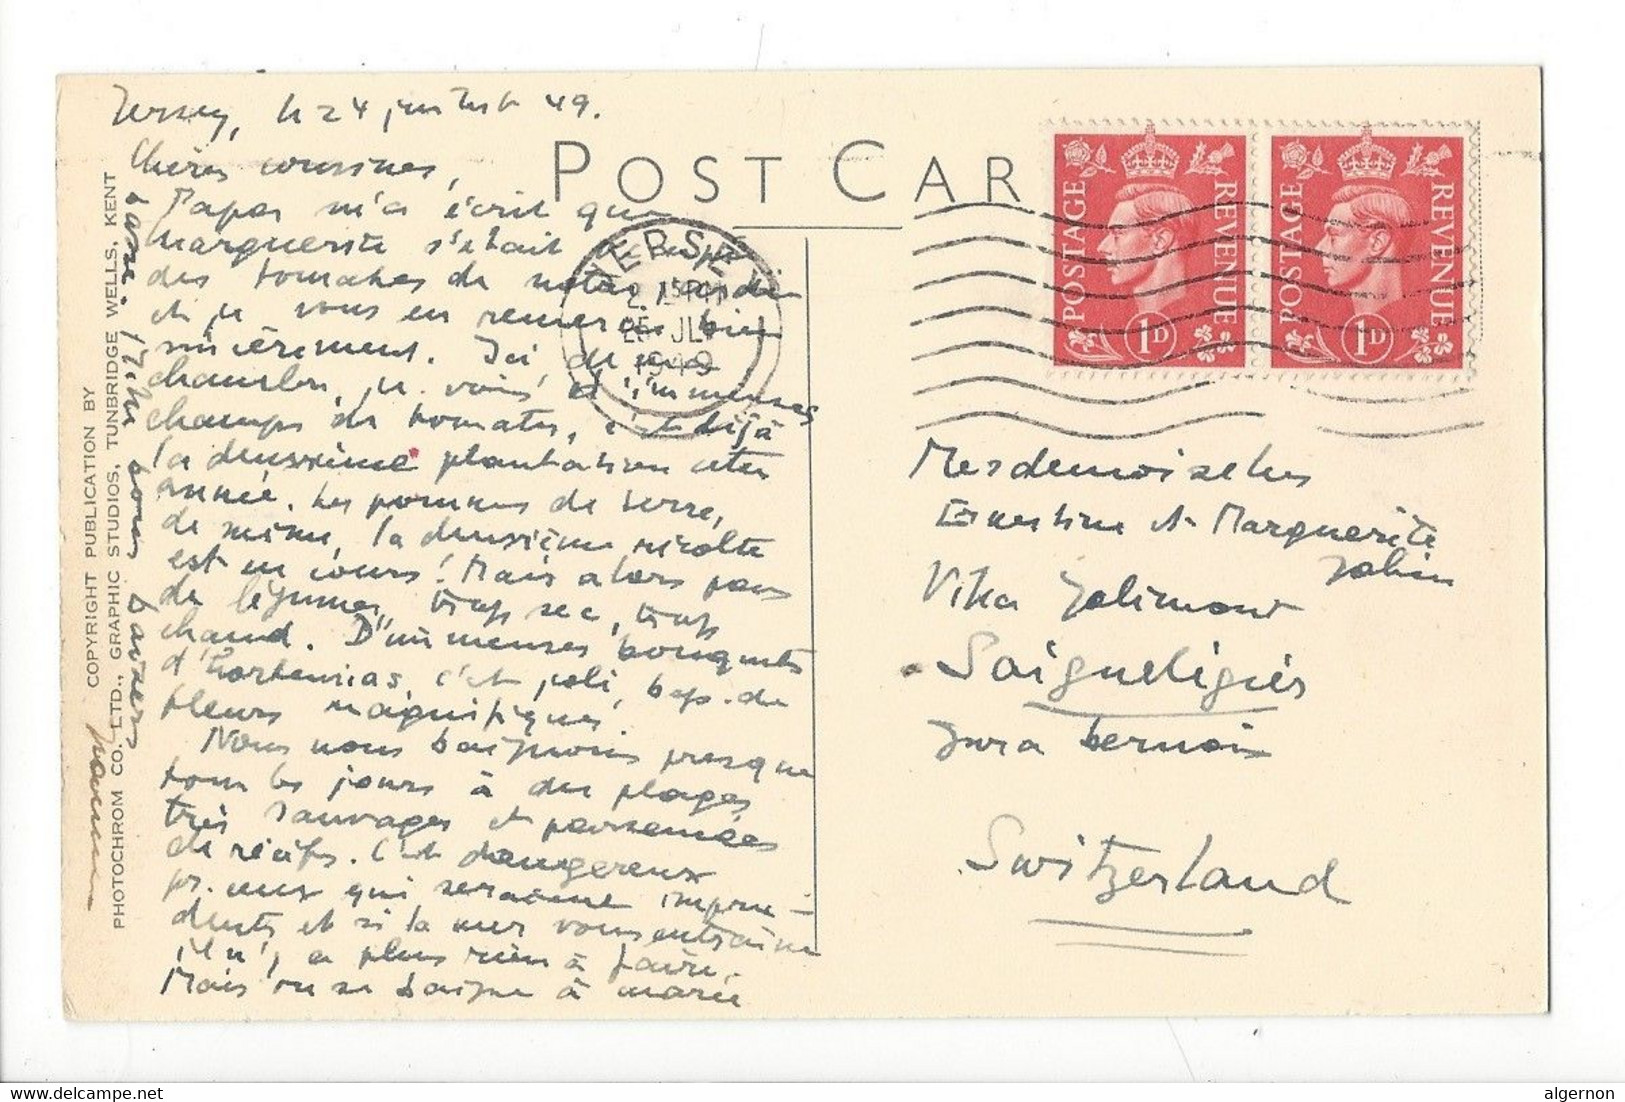 Jersey, le 24 juillet 49.
Chères cousines,
Papa m'a écrit que
Marguerite s'était occupée
des tomates de notre jardin
et je vous en remercie bien
sincèrement. Ici, de ma
chambre, je vois d'immenses
champs de tomates, c'est déjà
la deuxième plantation cette
année. Les pommes de terre,
de même, la deuxième récolte
est en cours! Mais alors pas
de légumes, trop sec, trop
chaud. D'immenses bouquets
d'hortensias, c'est joli, bcp. de
fleurs magnifiques.
Nous nous baignons presque
tous les jours à des plages
très sauvages et parsemées
de récifs. C'est dangereux
pr. ceux qui seraient impru-
dents et si la mer vous entraîne
il n'y a plus rien à faire.
Mais on se baigne à marée
basse. bons baisers
POST CAR
JERSEY
2.15 PM
25 JLY
1949
POSTAGE REVENUE
1D
POSTAGE REVENUE
1D
Mesdemoiselles
Ernestine et Marguerite
Jobin
Villa Jolimont
Saignelégier
Jura bernois
Switzerland
COPYRIGHT PUBLICATION BY
PHOTOCHROM CO. LTD., GRAPHIC STUDIOS, TUNBRIDGE WELLS, KENT
delcampe.net
algernon